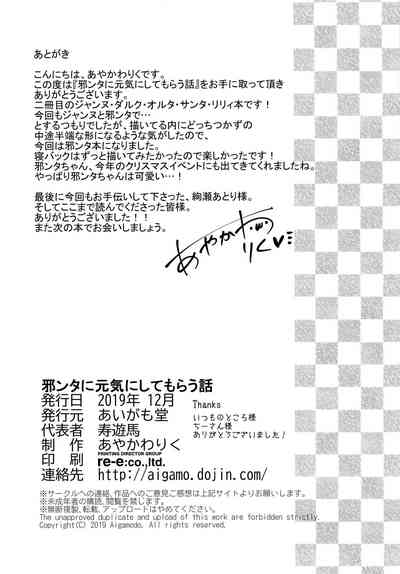 あとがき
こんにちは、あやかわりくです。
この度は『邪ンタに元気にしてもらう話』をお手に取って頂き
ありがとうございます。
二冊目のジャンヌ・ダルク・オルタ・サンタ・リリィ本です！
今回もジャンヌと邪ンタで…
とするつもりでしたが、描いてる内にどっちつかずの
中途半端な形になるような気がしたので、
今回は邪ンタ本になりました。
寝バックはずっと描いてみたかったので楽しかったです！
邪ンタちゃん、今年のクリスマスイベントにも出てきてくれましたね。
やっぱり邪ンタちゃんは可愛い…！
最後に今回もお手伝いして下さった、絢瀬あとり様。
そしてここまで読んでくださった皆様。
ありがとうございました！！
また次の本でお会いしましょう。
あやかわりく
邪ンタに元気にしてもらう話
発行日 2019年 12月
発行元 あいがも堂
代表者 寿遊馬
制作 あやかわりく
PRINTING DIRECTOR GROUP
印刷 re-e:co.,ltd.
連絡先 http://aigamo.dojin.com/
Thanks
いつものところ様
ちーさん様
ありがとうございました！
※サークルへの連絡、作品へのご意見ご感想は上記サイトよりお願いします。
※未成年者の購読、閲覧を禁じます。
※無断複製、転載、アップロードはやめてください。
The unapproved duplicate and upload of this work are forbidden strictly.
Copyright(C) 2019 Aigamodo. All rights reserved.